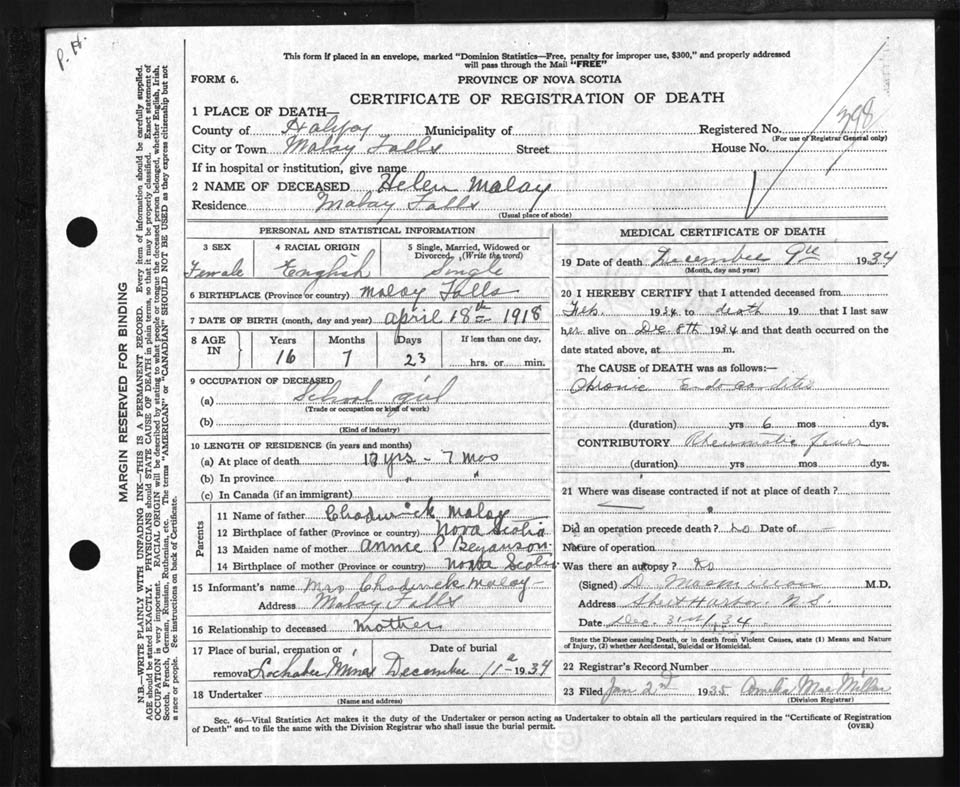 P. H.
This form if placed in an envelope, marked "Dominion Statistics—Free, penalty for improper use, $300," and properly addressed
will pass through the Mail "FREE"
FORM 6.
PROVINCE OF NOVA SCOTIA
CERTIFICATE OF REGISTRATION OF DEATH
1 PLACE OF DEATH—
County of Halifax Municipality of Registered No. 398
(For use of Registrar General only)
City or Town Malay Falls Street House No.
If in hospital or institution, give name
2 NAME OF DECEASED Helen Malay
Residence Malay Falls
(Usual place of abode)
PERSONAL AND STATISTICAL INFORMATION
3 SEX 4 RACIAL ORIGIN 5 Single, Married, Widowed or
Divorced, (Write the word)
Female English Single
6 BIRTHPLACE (Province or country) Malay Falls
7 DATE OF BIRTH (month, day and year) April 18th 1918
8 AGE IN Years Months Days If less than one day,
16 7 23 hrs. or min.
9 OCCUPATION OF DECEASED
(a) School girl
(Trade or occupation or kind of work)
(b)
(Kind of industry)
10 LENGTH OF RESIDENCE (in years and months)
(a) At place of death yrs - 7 mos
(b) In province " "
(c) In Canada (if an immigrant)
Parents
11 Name of father Chadwick Malay
12 Birthplace of father (Province or country) Nova Scotia
13 Maiden name of mother Annie P
14 Birthplace of mother (Province or country) Nova Scotia
15 Informant's name Mrs Chadwick Malay
Address Malay Falls
16 Relationship to deceased mother
17 Place of burial, cremation or Date of burial
removal Lochaber Mines December 11 1934
18 Undertaker
(Name and address)
MEDICAL CERTIFICATE OF DEATH
19 Date of death December 9th 1934
(Month, day and year)
20 I HEREBY CERTIFY that I attended deceased from
Feb. 1934 to death 19 that I last saw
her alive on Dec 8th 1934 and that death occurred on the
date stated above, at m.
The CAUSE OF DEATH was as follows:—
Chronic Endocarditis
(duration) yrs 6 mos dys.
CONTRIBUTORY Rheumatic fever
(duration) yrs mos dys.
21 Where was disease contracted if not at place of death?
Did an operation precede death? no Date of -
Nature of operation
Was there an autopsy? no
(Signed) D. MacMillan M.D.
Address Sheet Harbor N.S.
Date Dec. 31st/34
State the Disease causing Death, or in death from Violent Causes, state (1) Means and Nature
of Injury, (2) whether Accidental, Suicidal or Homicidal.
22 Registrar's Record Number
23 Filed Jan 2nd 1935 MacMillan
(Division Registrar)
Sec. 46—Vital Statistics Act makes it the duty of the Undertaker or person acting as Undertaker to obtain all the particulars required in the "Certificate of Registration
of Death" and to file the same with the Division Registrar who shall issue the burial permit. (OVER)
MARGIN RESERVED FOR BINDING
N.B.—WRITE PLAINLY WITH UNFADING INK—THIS IS A PERMANENT RECORD. Every item of information should be carefully supplied.
AGE should be stated EXACTLY. PHYSICIANS should STATE CAUSE OF DEATH in plain terms, so that it may be properly classified. Exact statement of
OCCUPATION is very important. RACIAL ORIGIN will be described by stating to what people or tongue the deceased person belonged, whether English, Irish,
Scotch, French, German, Russian, Ruthenian, etc. The terms "AMERICAN" or "CANADIAN" SHOULD NOT BE USED as they express citizenship but not
a race or people. See instructions on back of Certificate.